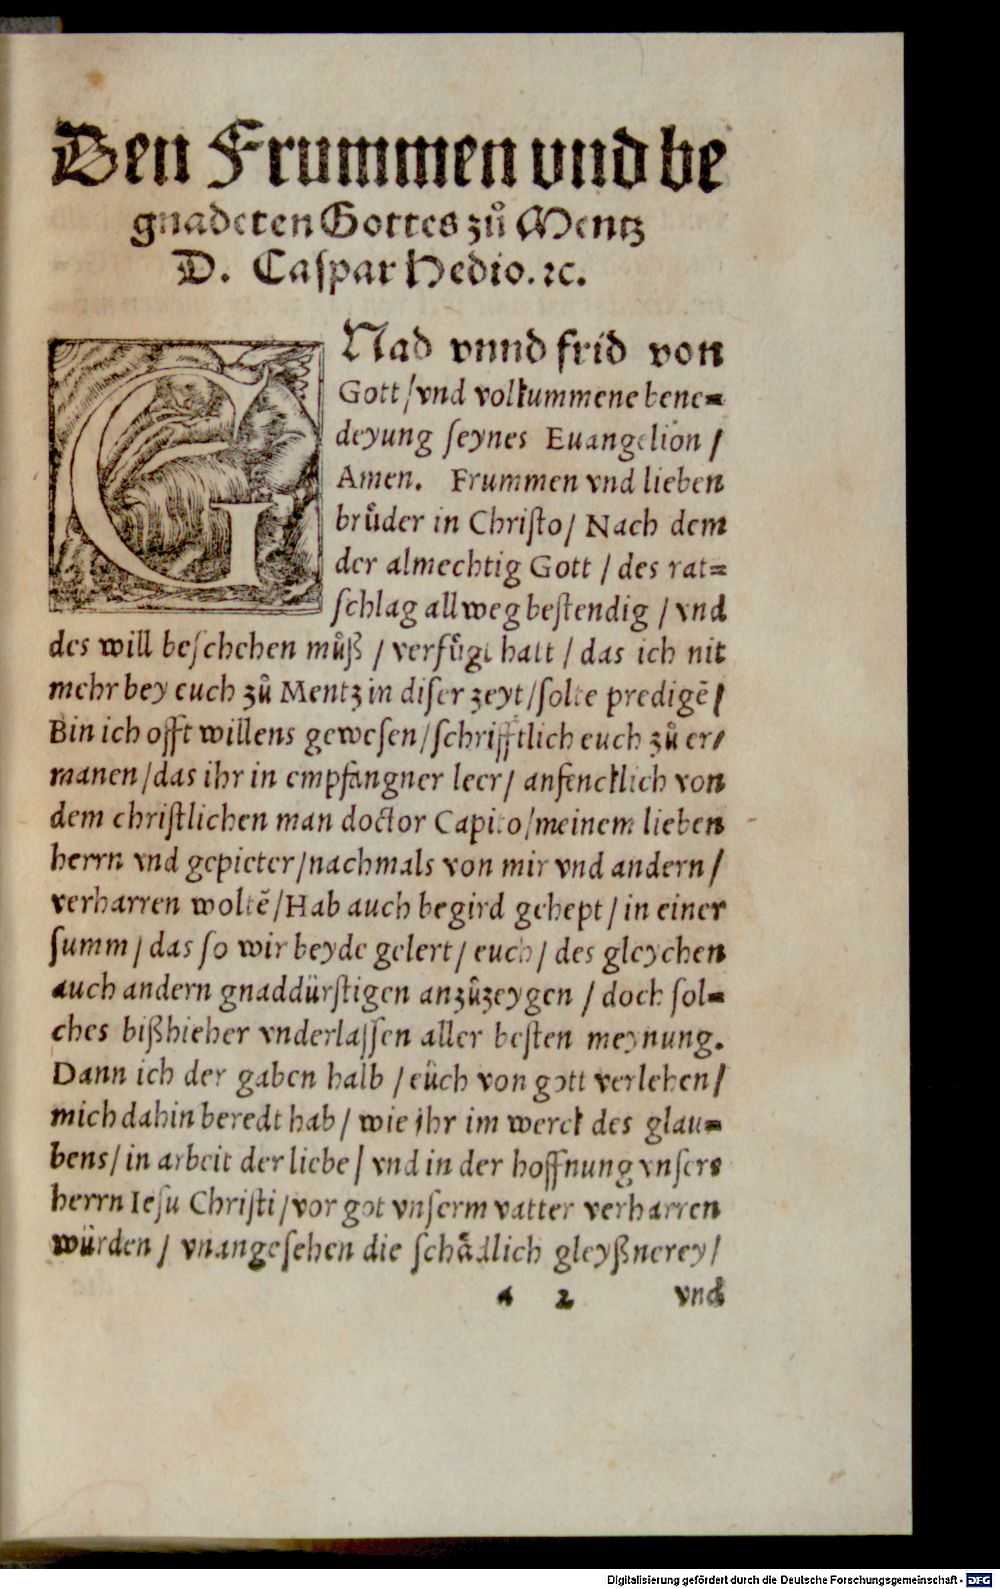 Den Frummen vnd be
gnadeten Gottes zů Mentz
D. Caspar Hedio. ꝛc.
GNad vnnd frid von
Gott/vnd volkummene bene⸗
deyung ſeynes Euangelion /
Amen. Frummen vnd lieben
brůder in Chriſto/ Nach dem
der almechtig Gott / des rat⸗
ſchlag allweg beſtendig / vnd
des will beſchehen můß / verfůgt hatt / das ich nit
mehr bey euch zů Mentz in diſer zeyt/ſolte predigē/
Bin ich offt willens geweſen/ſchrifftlich euch zů er/
manen/das ihr in empfangner leer/ anfencklich von
dem chriſtlichen man doctor Capito/meinem lieben
herrn vnd gepieter/nachmals von mir vnd andern/
verharren woltē/Hab auch begird gehept/in einer
ſumm/das ſo wir beyde gelert/ euch/ des gleychen
auch andern gnaddürſtigen anzůzeygen / doch ſol⸗
ches bißhieher vnderlaſſen aller beſten meynung.
Dann ich der gaben halb /eüch von gott verlehen/
mich dahin beredt hab/ wie ihr im werck des glau⸗
bens/in arbeit der liebe/ vnd in der hoffnung vnſers
herrn Ieſu Chriſti/vor got vnſerm vatter verharren
würden/ vnangeſehen die ſchådlich gleyßnerey/
a 2 vnd
Digitalisierung gefördert durch die Deutsche Forschungsgemeinschaft - DFG